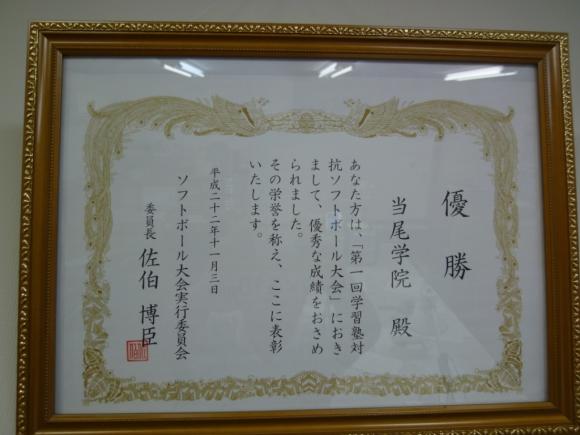 優勝
当尾学院 殿
あなた方は、「第一回学習塾対
抗ソフトボール大会」におき
まして、優秀な成績をおさめ
られました。
その栄誉を称え、ここに表彰
いたします。
平成二十二年十一月三日
ソフトボール大会実行委員会
委員長 佐伯 博臣